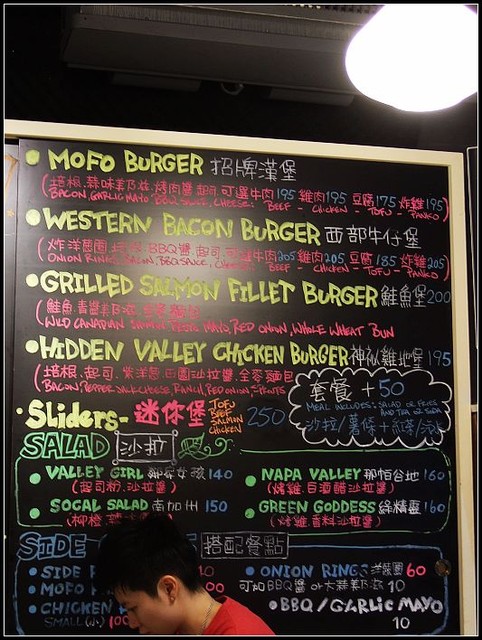 MOFO BURGER 招牌漢堡
(培根.蒜味美乃滋.烤肉醬.起司.可選牛肉195 雞肉195 豆腐175 炸雞195)
BACON, GARLIC MAYO, BBQ SAUCE, CHEESE. BEEF - CHICKEN - TOFU - PANKO
WESTERN BACON BURGER 西部牛仔堡
(炸洋蔥圈.培根.BBQ醬.起司.可選牛肉205 雞肉205 豆腐185 炸雞205)
ONION RINGS, BACON, BBQ SAUCE, CHEESE. BEEF - CHICKEN - TOFU - PANKO
GRILLED SALMON FILLET BURGER 鮭魚堡 200
(鮭魚.青醬美乃滋
WILD CANADIAN MAYO, RED ONION, WHOLE WHEAT BUN
HIDDEN VALLEY CHICKEN BURGER 神似雞地堡 195
(培根.起司.紫洋蔥.田園沙拉醬.全麥麵包
BACON, PEPPER JACK CHEESE, RANCH, RED ONION, SPROUTS
套餐 +50
MEAL INCLUDES: SALAD OR FRIES
AND TEA OR SODA
沙拉/薯條+紅茶/汽水
Sliders- 迷你堡 TOFU BEEF SALMON CHICKEN 250
SALAD 沙拉
VALLEY GIRL 鄰家女孩 140
(起司粉.沙拉醬)
NAPA VALLEY 那帕谷地 160
(烤雞.白酒醋沙拉醬)
SOCAL SALAD 南加州 150
(柳橙
GREEN GODDESS 綠精靈 160
(烤雞.香料沙拉醬)
SIDE 搭配餐點
SIDE 10
ONION RINGS 洋蔥圈 60
MOFO 10
可加BBQ醬 or 大蒜美乃滋 10
CHICKEN
SMALL(小) 100
BBQ/GARLIC MAYO
10